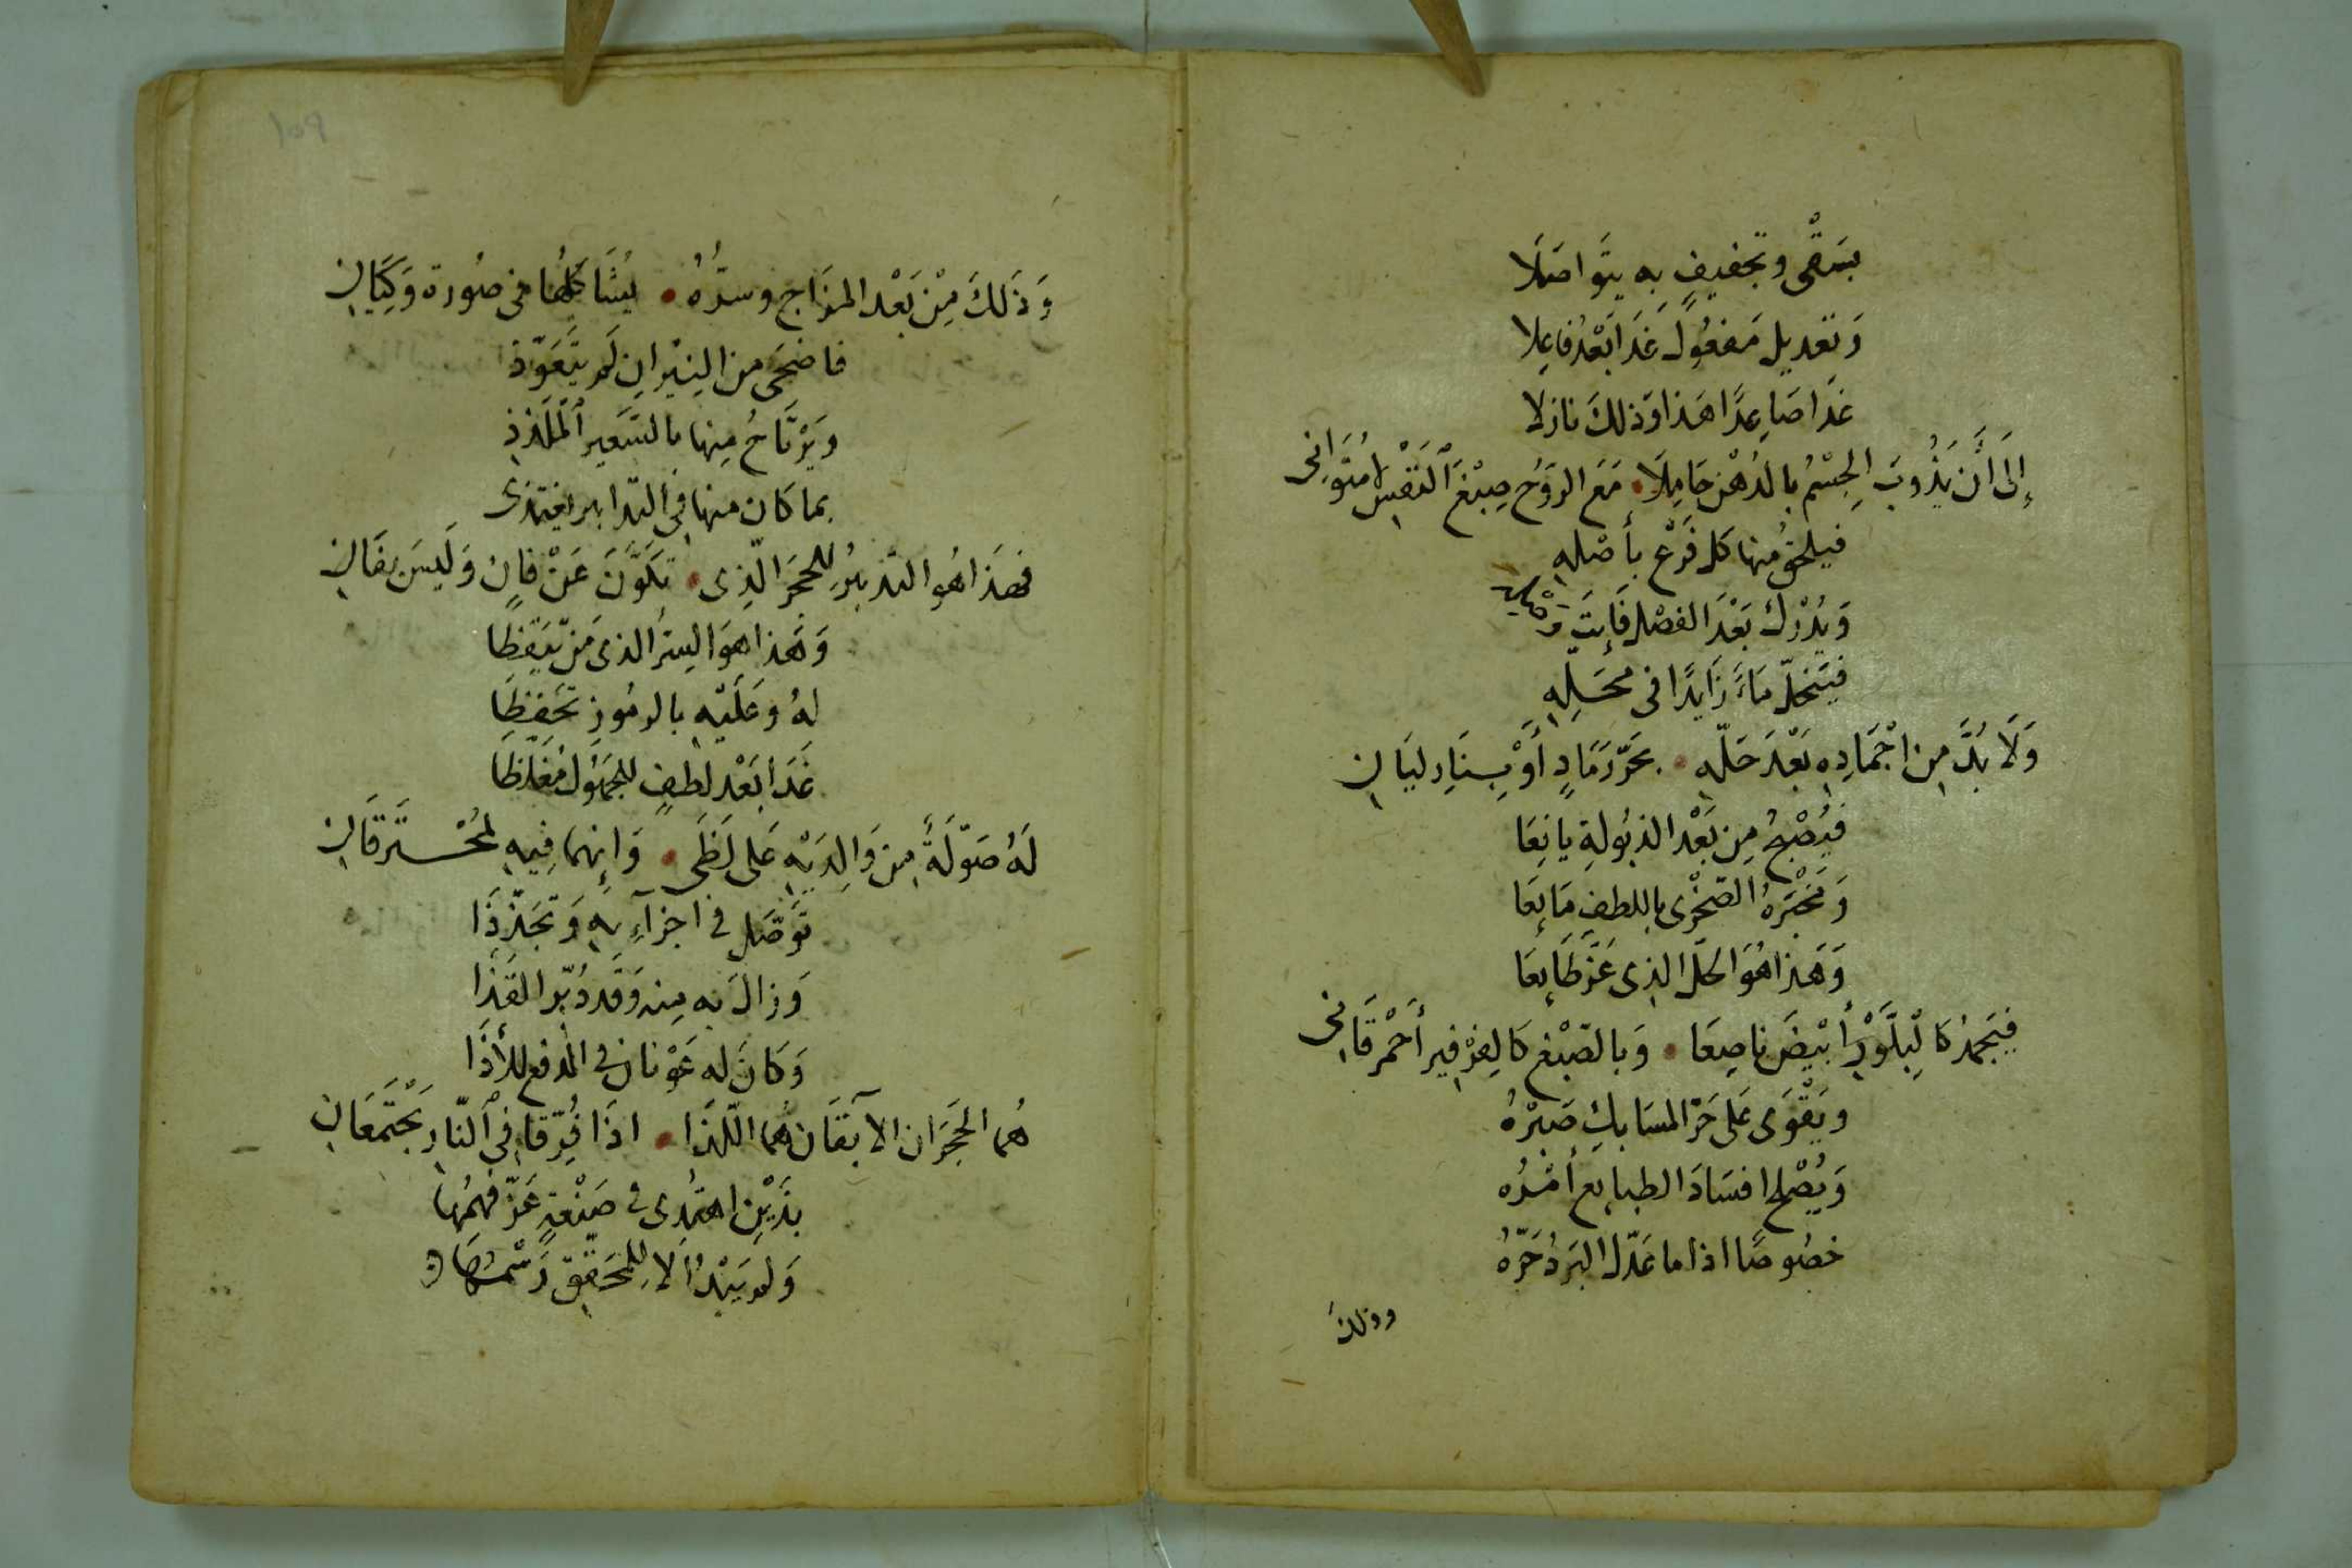 بسَقْى وتجفيفٍ به يتَواصَلَا
وَتعديل مَفعُولٍ غَدَا بَعْدُ فاعِلا
غدَا صَاعِدًا هَذا وَذلكَ نازلا
إلَى أَن يَذُوبَ الجِسْمُ بالدُهْن حَامِلَا • مَعَ الروُح صِبْغَ النَفْسِ مُتوَانِى
فيلحقُ منها كل فَرْع بأصْله
وَيُدْرك بَعْدَ الفصْلِ فَايتَ
فيَنحَلّ مَاءً زَايدًا فى محَلِه
وَلَا بدَّ مِن اجْمَادِه بَعْدَ حَلّه • بحَرّ رَمَادٍ أَوْ بِنَارِ لَيَانِ
فيُصْبحُ مِن بَعْد الذبُولةِ يانِعَا
وَمَحْجَرهُ الصَخْرى باللطفِ مَايعَا
وَهَذا هُوَ الحَلّ الذِى عَزّ طَايعَا
فيَجمدُ كَالبِلَّوْرِ أبْيضَ ناصِعَا • وَبالصَبْغ كَالفِرْفِير أحَمْر قَانِى
ويَقْوَى عَلى حَرّ المسَابكِ صَبْرُهُ
وَيُصْلح افسَادَ الطبايع أمْرُه
خصُوصًا اذا ما عَدّل البَردُ حَرّهُ
وذلكَ
وَذَلكَ مِنْ بَعْد المزَاج وسرُّهُ • يُشَاكلُهَا فى صُورة وَكِيَانِ
فاضحَى من النِيْرانِ لَم يتَعَوّذ
ويَرْتَاحُ مِنها بالسَّعيرِ المُلَذِذِ
بما كَان منها فى التدابير يغتذى
فهَذا هُو التدبيرُ للحَجَرِ الّذِى • تكَوَّنَ عَنْ فانٍ وَلَيسَ بفَانِ
وَهَذا هوَ السِرُّ الذى مَن تيَقّظَا
لهُ وعَلَيْه بالرمُوزِ تحَفّظَا
غَدَا بَعْد لطفٍ للجمَوُلِ مُغَلّظَا
لَهُ صَوّلَةٌ مِن وَالِدَيْه عَلى لَظَى • وَإنهما فِيه لمُحْتَرقَانِ
توَصّل فى اجزآءِ بهِ وَتجَذّذَا
وَزالَ به مِنه وَقَد دُبّر القَذَا
وَكانَ له عَوْنان فى الدفع للأذَا
هُما الحَجَرَان الآبقَان هُما اللّذَا • اذَا فُرّقا فى النّار يَجْتمعَانِ
بذَيْنِ اهتدِى فى صَنْعةٍ عَزّ فهمُها
وَلم يَبْدُ الا لِلمحَقّقِ رَسْمُهَا